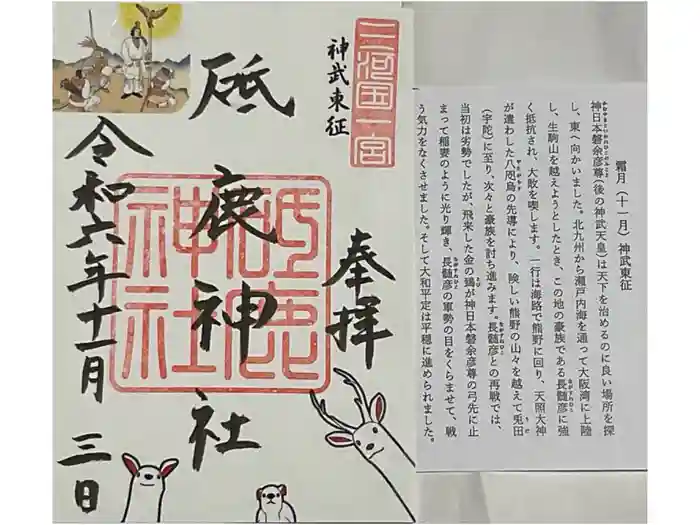 三河国一宮
神武東征
奉拝
砥鹿神社
砥鹿神社
令和六年十一月三日
霜月（十一月）神武東征
神日本磐余彦尊（後の神武天皇）は天下を治めるのに良い場所を探
し、東へ向かいました。北九州から瀬戸内海を通って大阪湾に上陸
し、生駒山を越えようとしたとき、この地の豪族である長髄彦に強
く抵抗され、大敗を喫します。一行は海路で熊野に回り、天照大神
が遣わした八咫烏の先導により、険しい熊野の山々を越えて兎田
（宇陀）に至り、次々と豪族を討ち進みます。長髄彦との再戦では、
当初は劣勢でしたが、飛来した金の鵄が神日本磐余彦尊の弓先に止
まって稲妻のように光り輝き、長髄彦の軍勢の目をくらませて、戦
う気力をなくさせました。そして大和平定は平穏に進められました。